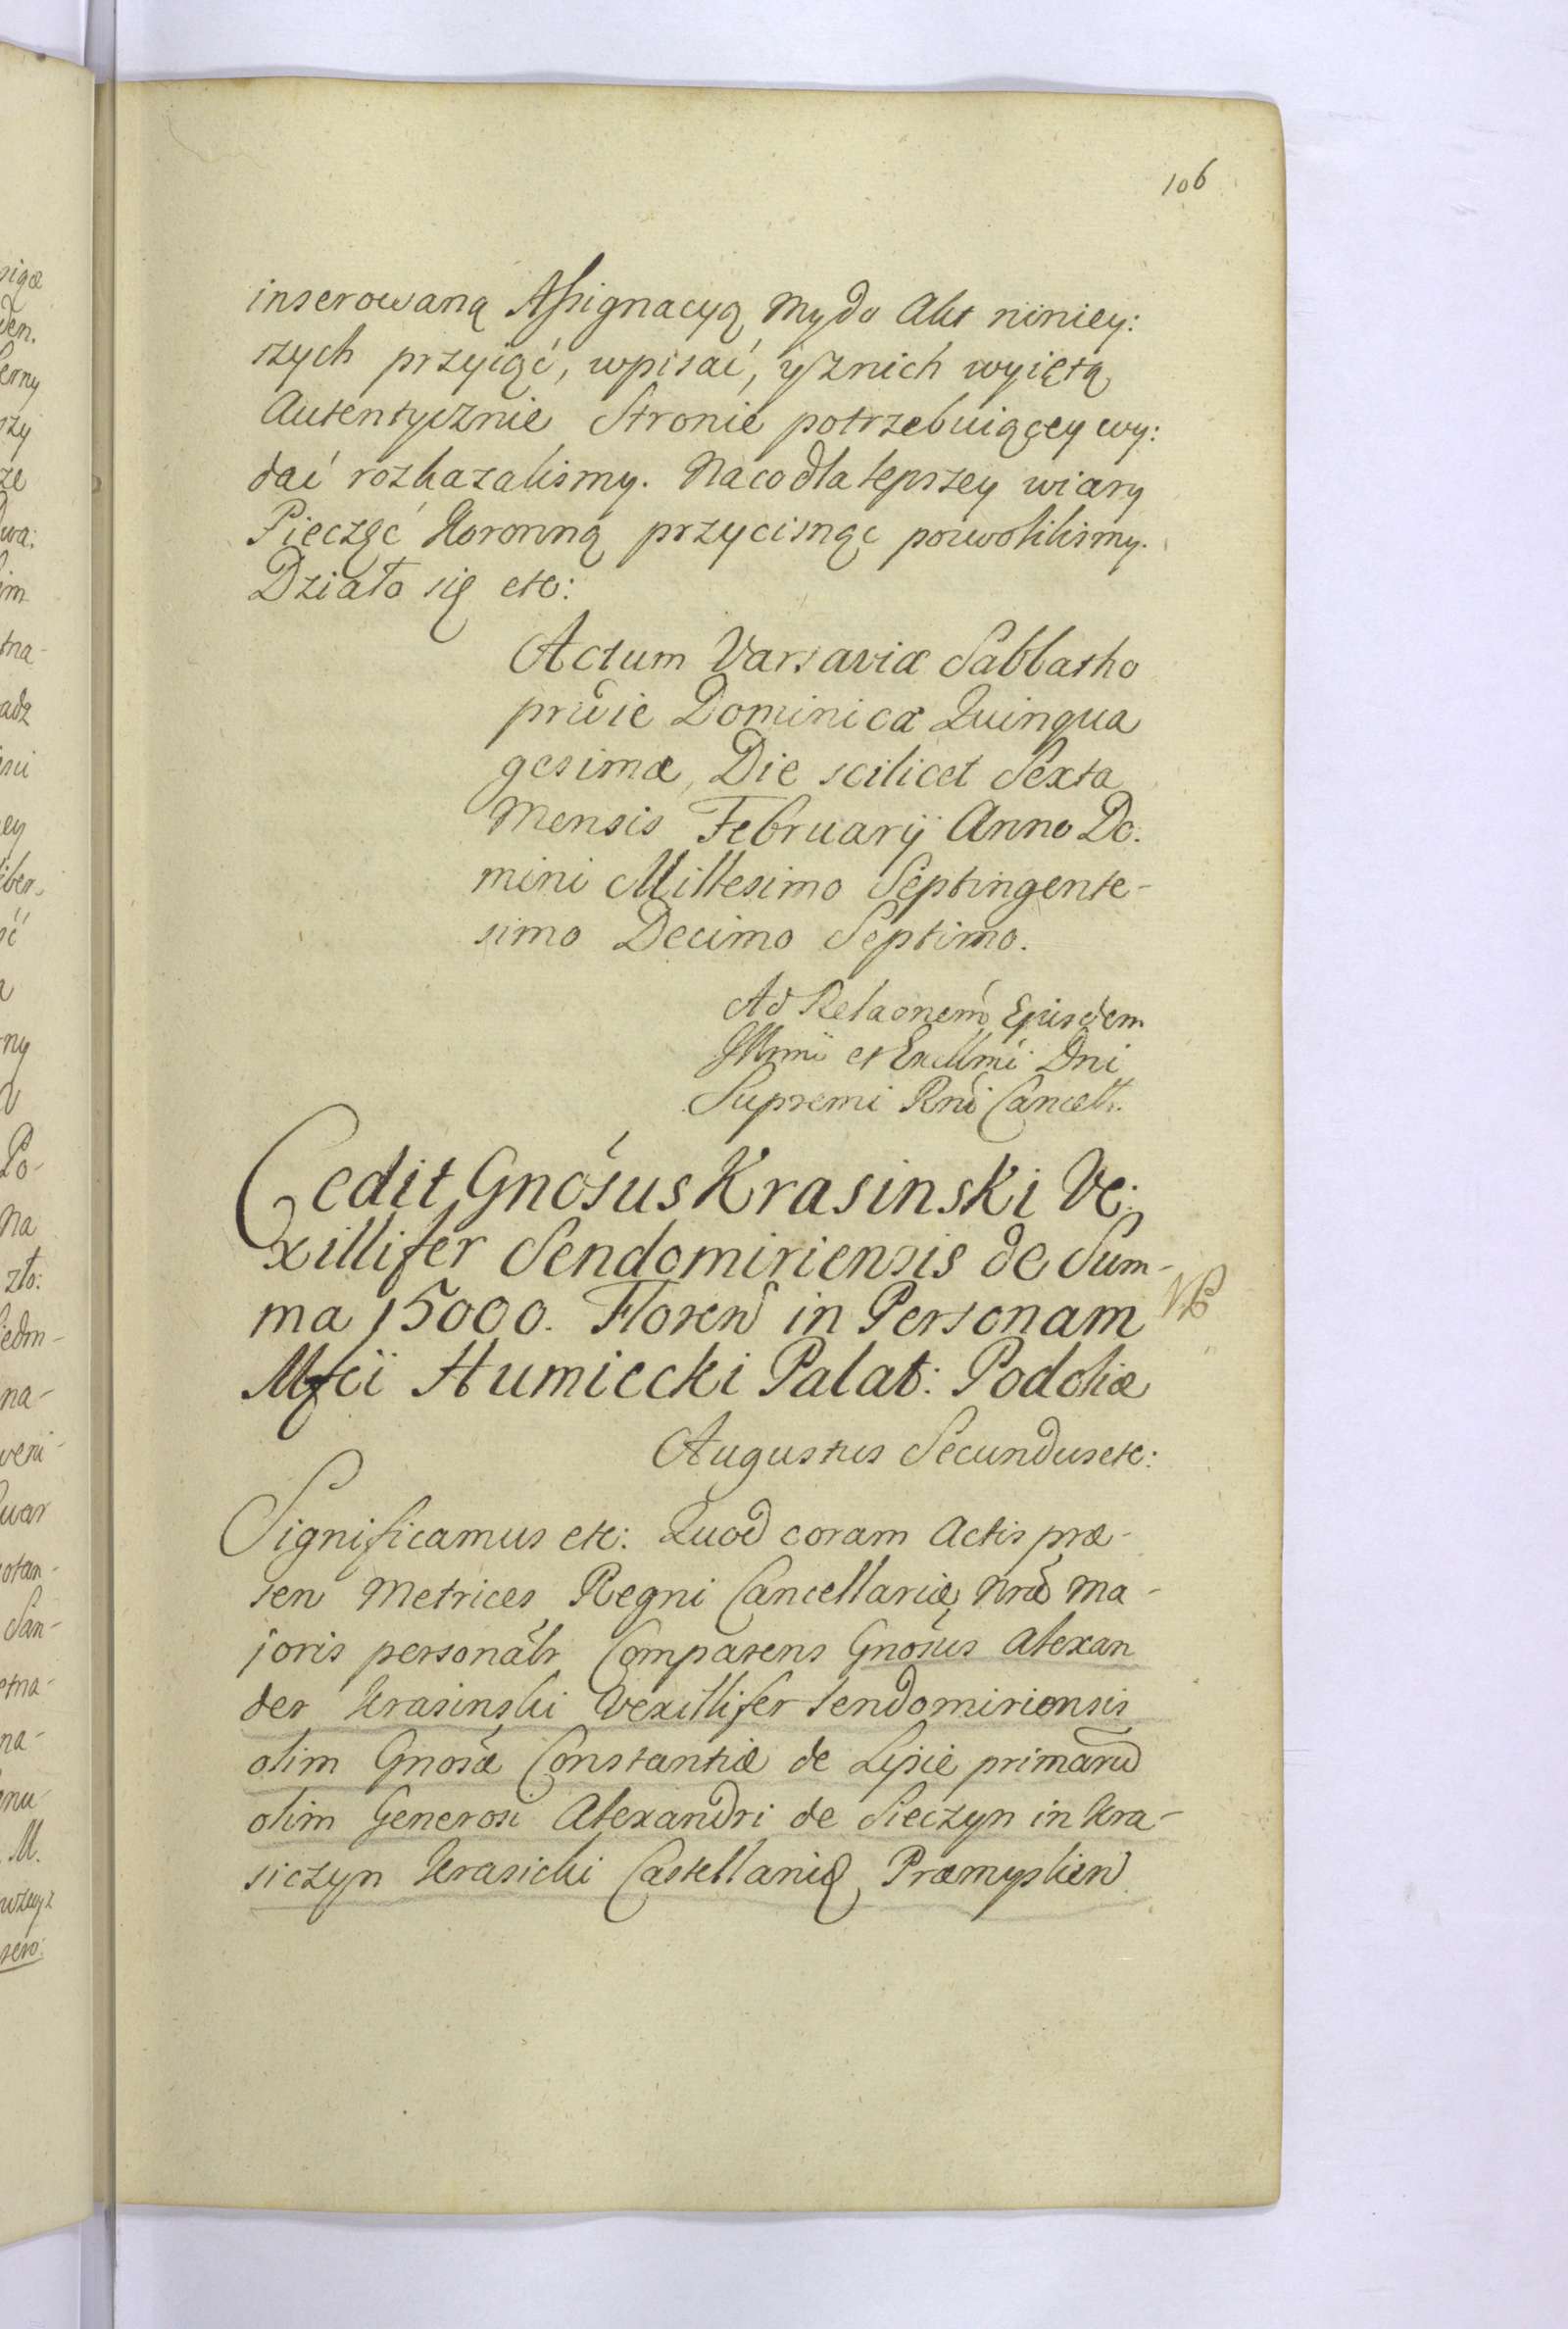 106
inserowaną Assignacyą my do Akt niniey:
szych przyiąć, wpisać, y z nich wyiętą
Autentycznie Stronie potrzebuiącey wy:
dać rozkazalismy. Na co dla lepszey wiary
Pieczęć Koronną przycisnąc pozwolilismy.
Działo się etc:
Actum Varsaviæ Sabbatho
pridie Dominicæ Quinqua
gesimæ, Die scilicet Sexta
Mensis Februarij Anno Do:
mini Millesimo Septingente-
simo Decimo Septimo.
Ad Relaõnem Ejusdem
Illmi et Excllmi Dni
Supremi Rni Cancell.
Cedit Gnosus Krasinski Ve:
xillifer Sendomiriensis de Sum-
ma 15000. Floren in Personam
Mfci Humiecki Palat: Podoliæ
NB
Augustus Secundus etc:
Significamus etc: Quod coram Actis præ-
sen Metrices Regni Cancellariæ Nræ Ma-
joris personalr Comparens Gnosus Alexan
der Krasinski Vexillifer Sendomiriensis
olim Gnosæ Constantiæ de Lipie primaru
olim Generosi Alexandri de Sieczyn in Kra-
siczyn Krasicki Castellani Præmyslien